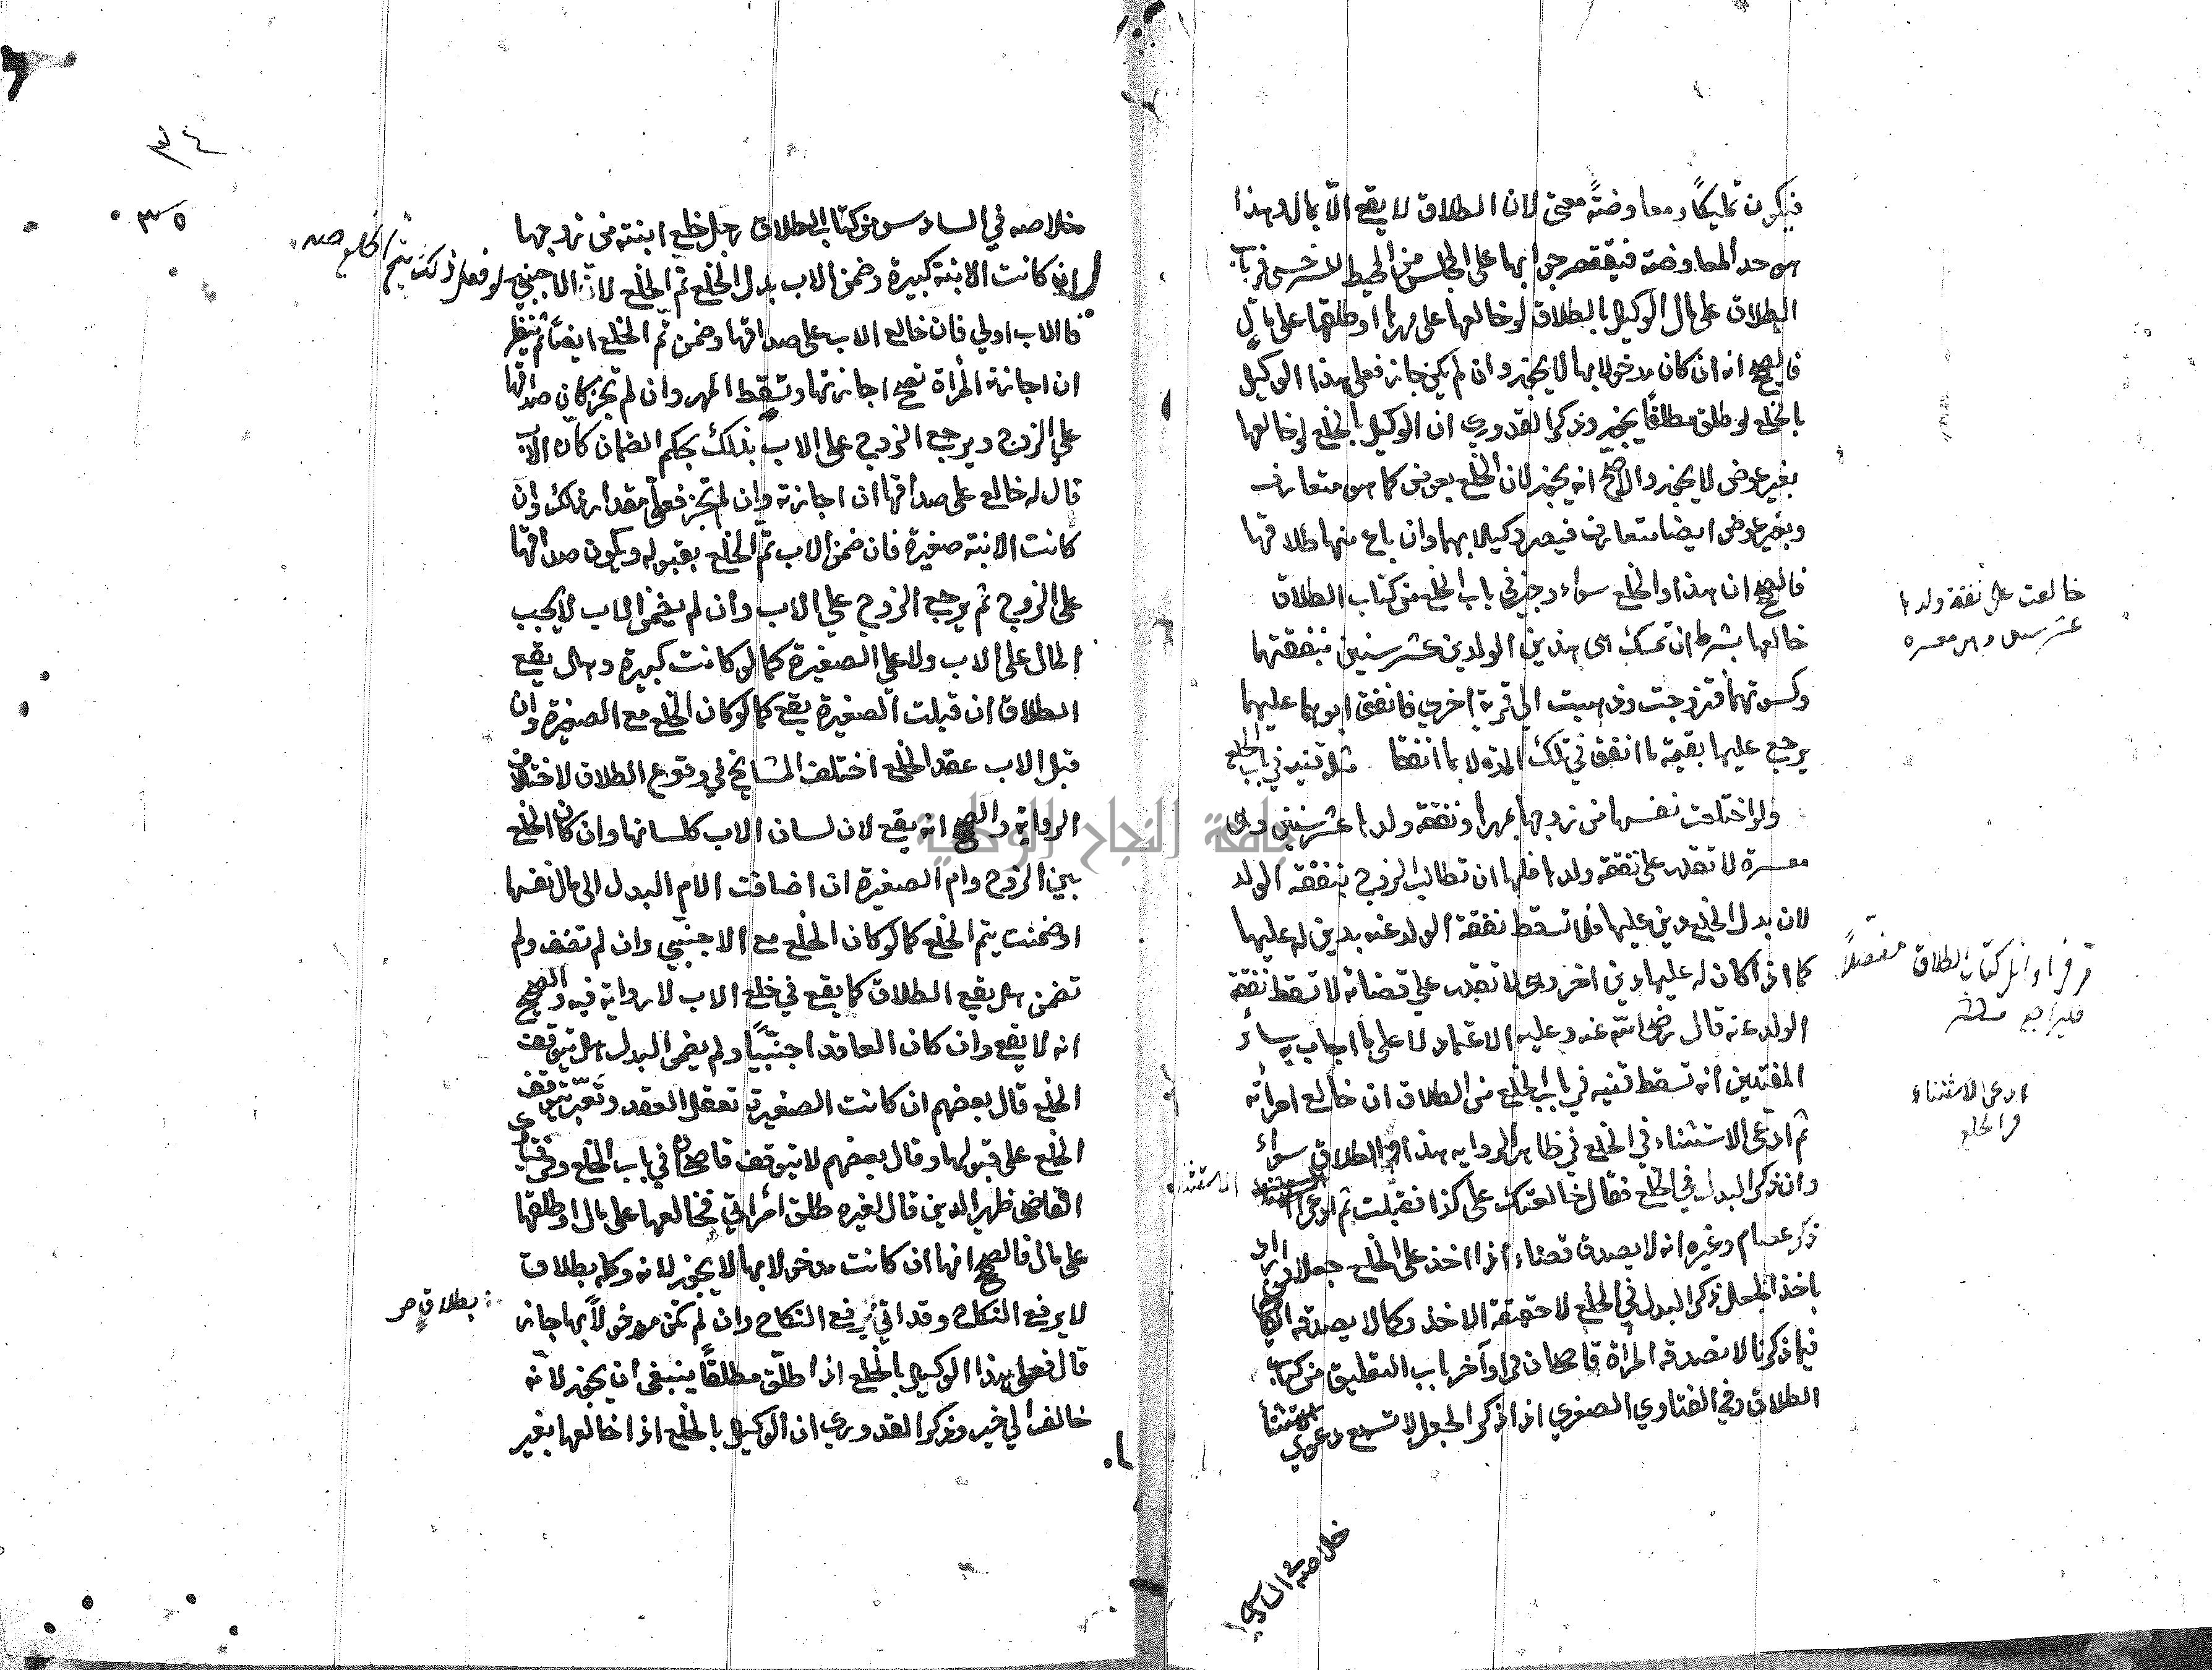 فيكون تمليكًا ومعاوضةً معنى لان الطلاق لا يقع الا بمال وهذا
هو حد المعاوضة فيقتصر جوابها على المجلس من المحيط للسرخسي في باب
الطلاق على مال الوكيل بالطلاق لو خالعها على مهرها او طلقها على مال
فالصحيح انه ان كان مدخولا بها لا يجوز وان لم يكن جاز فعلى هذا الوكيل
بالخلع لو طلق مطلقًا يجوز وذكر القدوري ان الوكيل بالخلع لو خالعها
بغير عوض لا يجوز والاصح انه يجوز لان الخلع بعوض كما هو متعارف
وبغير عوض ايضا متعارف فيصير وكيلا بهما وان باع منها طلاقها
فالصحيح ان هذا والخلع سواء وجيز في باب الخلع من كتاب الطلاق
خالعها بشرط ان تمسك هى هذين الولدين عشر سنين بنفقتهما
وكسوتهما فتزوجت وذهبت الي قرية اخري فانفق ابوهما عليهما
يرجع عليها بقيمة ما انفق في تلك المدة لا بما انفقا قنيه في باب الخلع
ولو اختلعت نفسها من زوجها بمهرها ونفقة ولدها عشر سنين وهى
معسرة لا تقدر على نفقة ولدها فلها ان تطالب الزوج بنفقة الولد
لان بدل الخلع دين عليها فلا تسقط نفقة الولد عنه بدين له عليها
كما اذا كان له عليها دين اخر وهى لا تقدر علي قضائه لا تسقط نفقة
الولد عنه قال رضى الله عنه وعليه الاعتماد لا على ما اجاب به سائر
المفتين انه تسقط قنيه في باب الخلع من الطلاق ان خالع امرأته
ثم ادعى الاستثناء في الخلع في ظاهر الروايه هذا والطلاق سواء
وان ذكر البدل في الخلع فقال خالعتك على كذا فقبلت ثم ادعى الاستثناء
ذكر عصام وغيره انه لا يصدق قضاء اذا اخذ على الخلع جعلا
باخذ الجعل ذكر البدل في الخلع لا حقيقة الاخذ وكما لا يصدقه القاضي
فيما ذكرنا لا تصدقه المرأة قاضيخان في اواخر باب التعليق من كتاب
الطلاق وفي الفتاوي الصغري اذا ذكر الجعل لا تسمع دعوي الاستثناء
خالعت على نفقة ولدها
عشر سنين وهى معسره
مر في اوائل كتاب الطلاق مفصلاً
فليراجع
ادعى الاستثناء
في الخلع
٣٤
٣٥
خلاصه في السادس من كتاب الطلاق رجل خلع ابنته من زوجها
ان كانت الابنة كبيرة وضمن الاب بدل الخلع تم الخلع لان الاجنبي لو فعل ذلك يتم الخلع
فالاب اولي فان خالع الاب على صداقها وضمن تم الخلع ايضًا ثم ينظر
ان اجازت المرأة تصح اجازتها وتسقط المهر وان لم تجز كان صداقها
علي الزوج ويرجع الزوج على الاب بذلك بحكم الضمان كان الاب
قال له خالع على صداقها ان اجازت وان لم تجز فعلي مقدار ذلك وان
كانت الابنة صغيرة فان ضمن الاب تم الخلع بقبوله ويكون صداقها
على الزوج ثم يرجع الزوج علي الاب وان لم يضمن الاب لا يجب
المال على الاب ولا على الصغيرة كما لو كانت كبيرة وهل يقع
الطلاق ان قبلت الصغيرة يقع كما لو كان الخلع مع الصغيرة وان
قبل الاب عقد الخلع اختلف المشايخ في وقوع الطلاق لاختلاف
الرواية والصحيح انه يقع لان لسان الاب كلسانها وان كان الخلع
بين الزوج وام الصغيرة ان اضافت الام البدل الى مال نفسها
او ضمنت يتم الخلع كما لو كان الخلع مع الاجنبي وان لم تضف ولم
تضمن هل يقع الطلاق كما يقع في خلع الاب لا رواية فيه والصحيح
انه لا يقع وان كان العاقد اجنبيًا ولم يضمن البدل هل يتوقف
الخلع قال بعضهم ان كانت الصغيرة تعقل العقد وتعبر يتوقف
الخلع على قبولها وقال بعضهم لا يتوقف قاضيخان في باب الخلع وفي فتاوى
القاضى ظهير الدين قال لغيره طلق امرأتي فخالعها على مال او طلقها
على مال فالصحيح انها ان كانت مدخولا بها لا يجوز لانه وكله بطلاق
لا يرفع النكاح وقد اتي يرفع النكاح وان لم تكن مدخولاً بها جاز
قال فعلى هذا الوكيل بالخلع اذا طلق مطلقًا ينبغى ان يجوز لانه
خالف الي خير وذكر القدوري ان الوكيل بالخلع اذا خالعها بغير
بطلاق
جامعة النجاح الوطنية